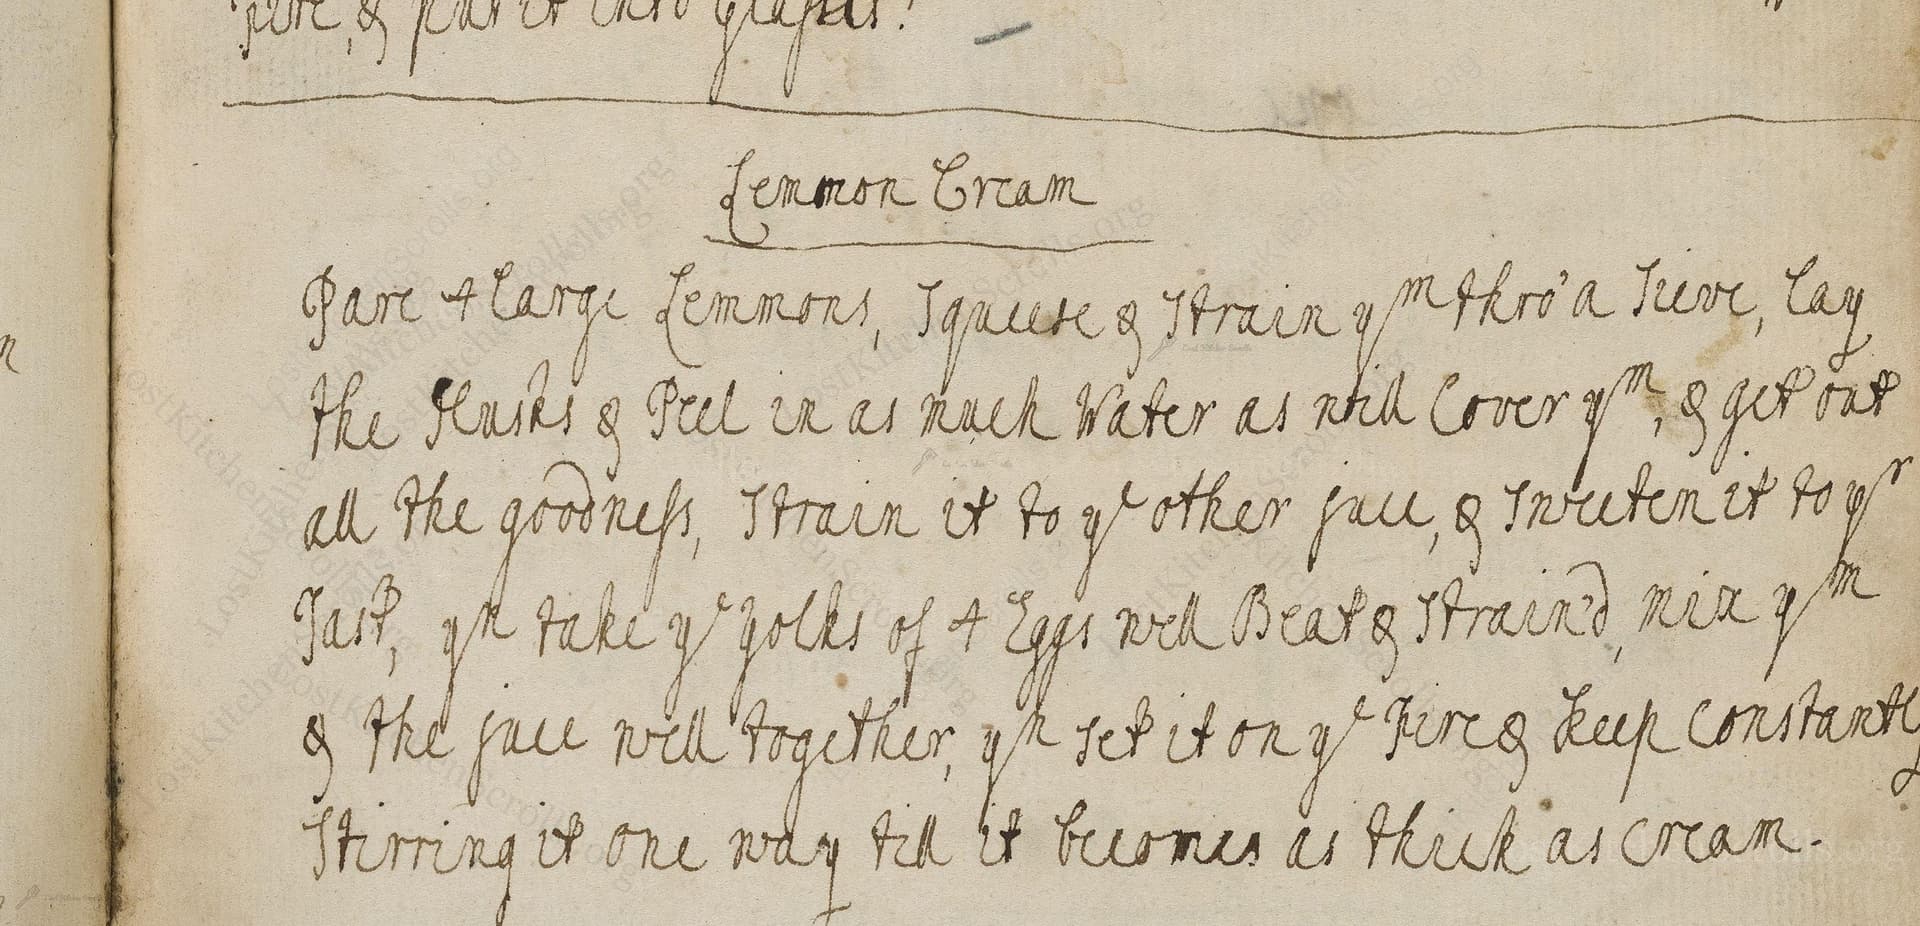 & put it into glasses.
Lemmon Cream
Pare 4 Large Lemmons, Squeese & Strain yᵐ thro' a Sieve, Lay
the Husks & Peel in as much Water as will Cover yᵐ, & get out
all the goodness, Strain it to yᵉ other juce, & Sweeten it to yʳ
Tast, yⁿ take yᵉ yolks of 4 Eggs well Beat & Strain'd, mix yᵐ
& the juce well together, yⁿ Set it on yᵉ Fire & Keep Constantly
Stirring it one way till it becomes as thick as Cream.